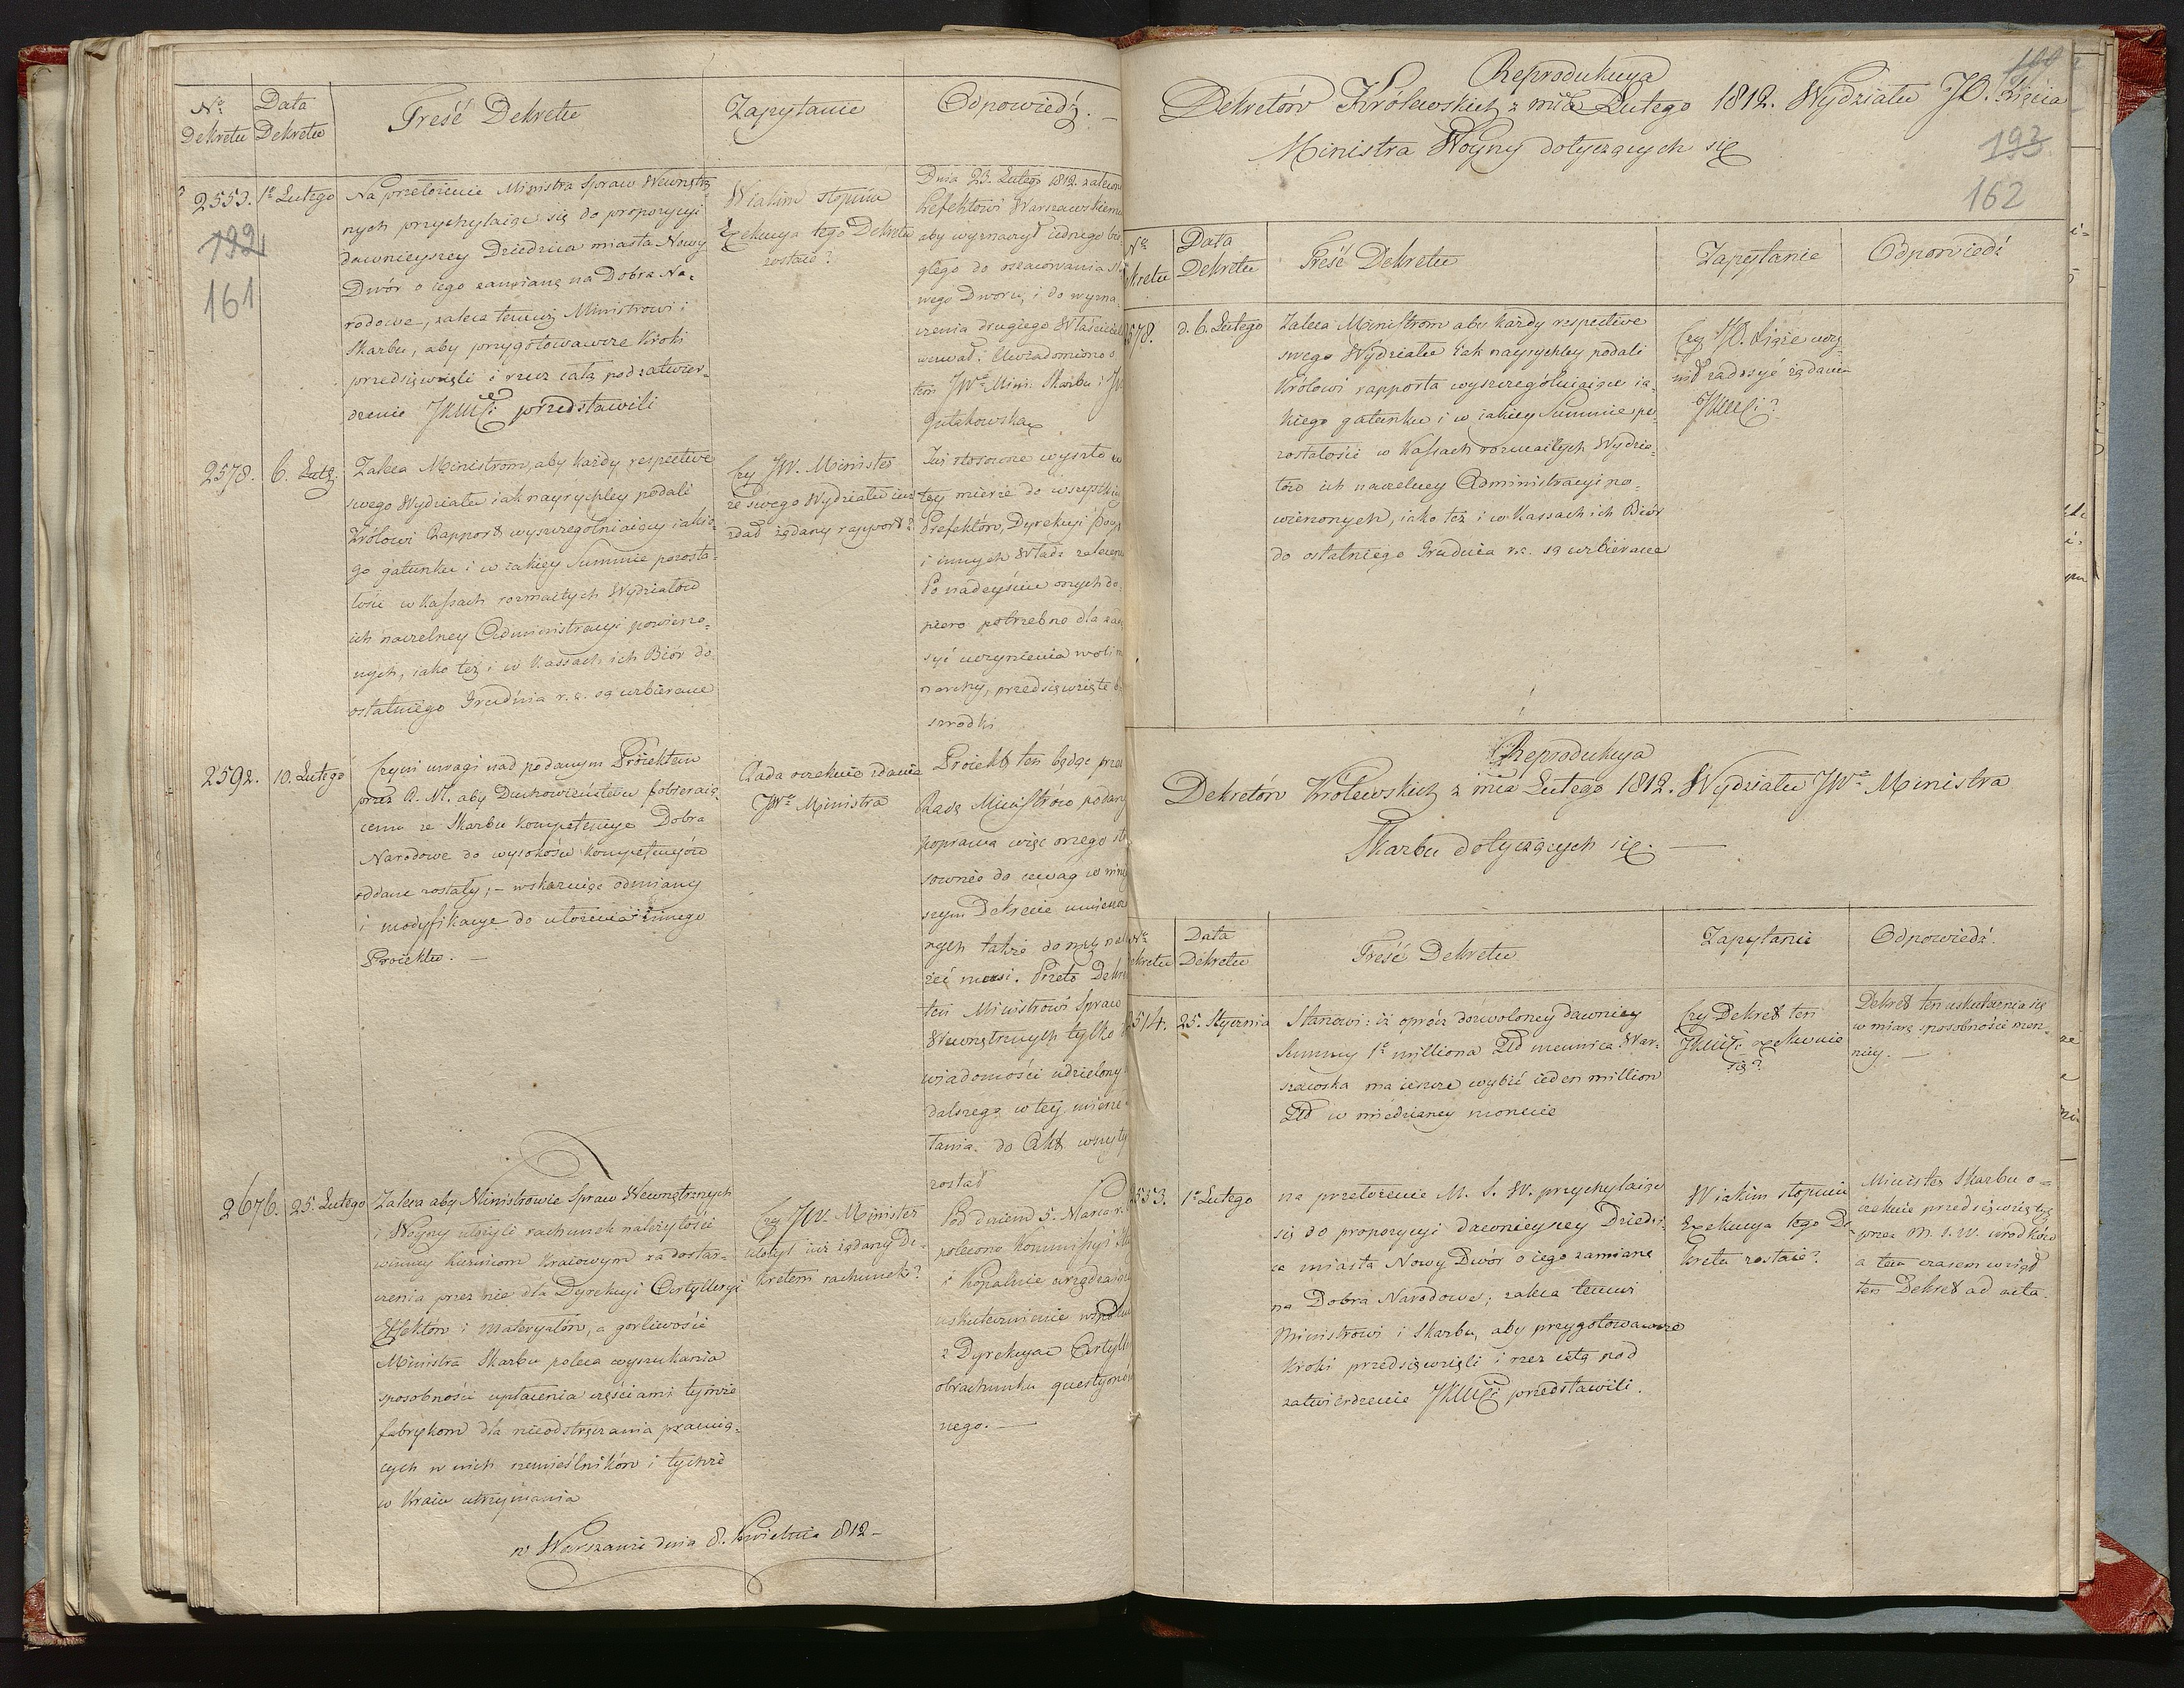 Nº Dekretu
Data Dekretu
Treść Dekretu
Zapytanie
Odpowiedź. —
2553.
192
161
1º Lutego
Na przełożenie Ministra Spraw Wewnętrz
nych przychylaiąc się do propozycyi
dawnieyszey Dziedzica miasta Nowy
Dwór o iego zamianę na Dobra Na,,
rodowe, zaleca temuż Ministrowi i
Skarbu, aby przygotowawcze kroki
przedsięwzięli i rzecz całą pod zatwier,,
dzenie JKMCi przedstawili
W iakim stopniu
Exekucya tego Dekretu
zostaie?
Dnia 23. Lutego 1812. zalecon
Prefektowi Warszawskiemu
aby wyznaczył iednego bie
głego do oszacowania No
wego Dworu, i do wyzna,,
czenia drugiego Właściciela
wezwał: Uwiadomiono o
tem JWº Min: Skarbu i JW
Gutakowską
2578.
6. Lutg:
Zaleca Ministrom, aby każdy respective
swego Wydziału iak nayrychley podali
Królowi Rapport wyszczególniaiący iakie,,
go gatunku i w iakiey Summie pozosta,,
łości w Kassach rozmaitych Wydziałów
ich naczelney Administracyi powierzo,,
nych, iako też i w Kassach ich Biór do
ostatniego Grudnia r. z. są uzbierane
Czy JW. Minister
ze swego Wydziału iuż
zdał żądany rapport?
Już stosowne wyszło w
tey mierze do wszystkich
Prefektów, Dyrekcyi Poczt
i innych Władz zalecenie
Po nadeyściu onych do,,
piero potrzebne dla zado
syć uczynienia woli m
narchy, przedsięwzięte bę
srzodki
2592.
10. Lutego
Czyni uwagi nad podanym Proiektem
przez R. M. aby Duchowieństwu pobieraią,,
cemu ze Skarbu kompetencye Dobra
Narodowe do wysokości kompetencyów
oddane zostały; — wskazuiąc odmiany
i modyfikacye do ułożenia innego
Proiektu. —
Rada oczekuie zdania
JWº Ministra
Proiekt ten będąc przez
Radę Ministrów podany
poprawa więc onego sto
sownie do uwag w niniey
szym Dekrecie umieszczo
nych także do niey nale
żeć musi. Przeto Dekret
ten Ministrowi Spraw
Wewnętrznych tylko
wiadomości udzielony
dalszego w tey mierze
łania do Akt wszyty
został
2676.
25. Lutego
Zaleca aby Ministrowie Spraw Wewnętrznych
i Woyny ułożyli rachunek należytości
winney Kuźnicom Kraiowym za dostar,,
czenia przez nie dla Dyrekcyi Artylleryi
Effektów i Materyałów, a gorliwości
Ministra Skarbu poleca wyszukania
sposobności upłacenia częściami tymże
fabrykom dla nieodstręczania pracuią,,
cych w nich rzemieślników i tychże
w Kraiu utrzymania
Czy JW. Minister
ułożył iuż żądany De,,
kretem rachunek?
Pod dniem 5. Marca r.
polecono Kommissyi
i Kopalnie urządzaiące
uskutecznienie wspólnie
z Dyrekcyą Artylle
obrachunku questyono
nego. —
w Warszawie dnia 8. Kwietnia 1812 —
Reprodukcya
Dekretów Królewskich z mca Lutego 1812. Wydziału JO. Xięcia
Ministra Woyny dotyczących się
193
162
Nº
kretu
Data
Dekretu
Treść Dekretu
Zapytanie
Odpowiedź
2578.
d. 6. Lutego
Zaleca Ministrom aby każdy respective
swego Wydziału iak nayrychley podali
Królowi rapporta wyszczególniaiące ia,,
kiego gatunku i w iakiey Summie po,,
zostałości w Kassach rozmaitych Wydzia,,
łów ich naczelney Administracyi po,,
wierzonych, iako też i w Kassach ich Biór
do ostatniego Grudnia r. z. są uzbierane
Czy JO. Xiąże uczy,,
nił zadosyć żądaniu
JKMCi?
Reprodukcya
Dekretów Królewskich z mca Lutego 1812. Wydziału JWº Ministra
Skarbu dotyczących się. —
Nº
ekretu
Data
Dekretu
Treść Dekretu
Zapytanie
Odpowiedź.
2514.
25. Stycznia
Stanowi: iż oprócz dozwoloney dawniey
Summy 1º milliona Złł mennica War,,
szawska ma ieszcze wybić ieden million
Złł w miedzianey monecie
Czy Dekret ten
JKMCi exekwuie
się?
Dekret ten uskutecznia się
w miarę sposobności men,,
nicy. —
2553.
1º Lutego
na przełożenie M. S. W. przychylaiąc
się do propozycyi dawnieyszey Dziedzi,,
ca miasta Nowy Dwór o iego zamianę
na Dobra Narodowe; zaleca temuż
Ministrowi i Skarbu, aby przygotowawcze
kroki przedsięwzięli i rzecz całą pod
zatwierdzenie JKMCi przedstawili.
W iakim stopniu
Exekucya tego De
kretu zostaie?
Minister Skarbu o=
czekuie przedsięwziętych
przez M. S. W. środków
a tem czasem wziął
ten Dekret ad acta.